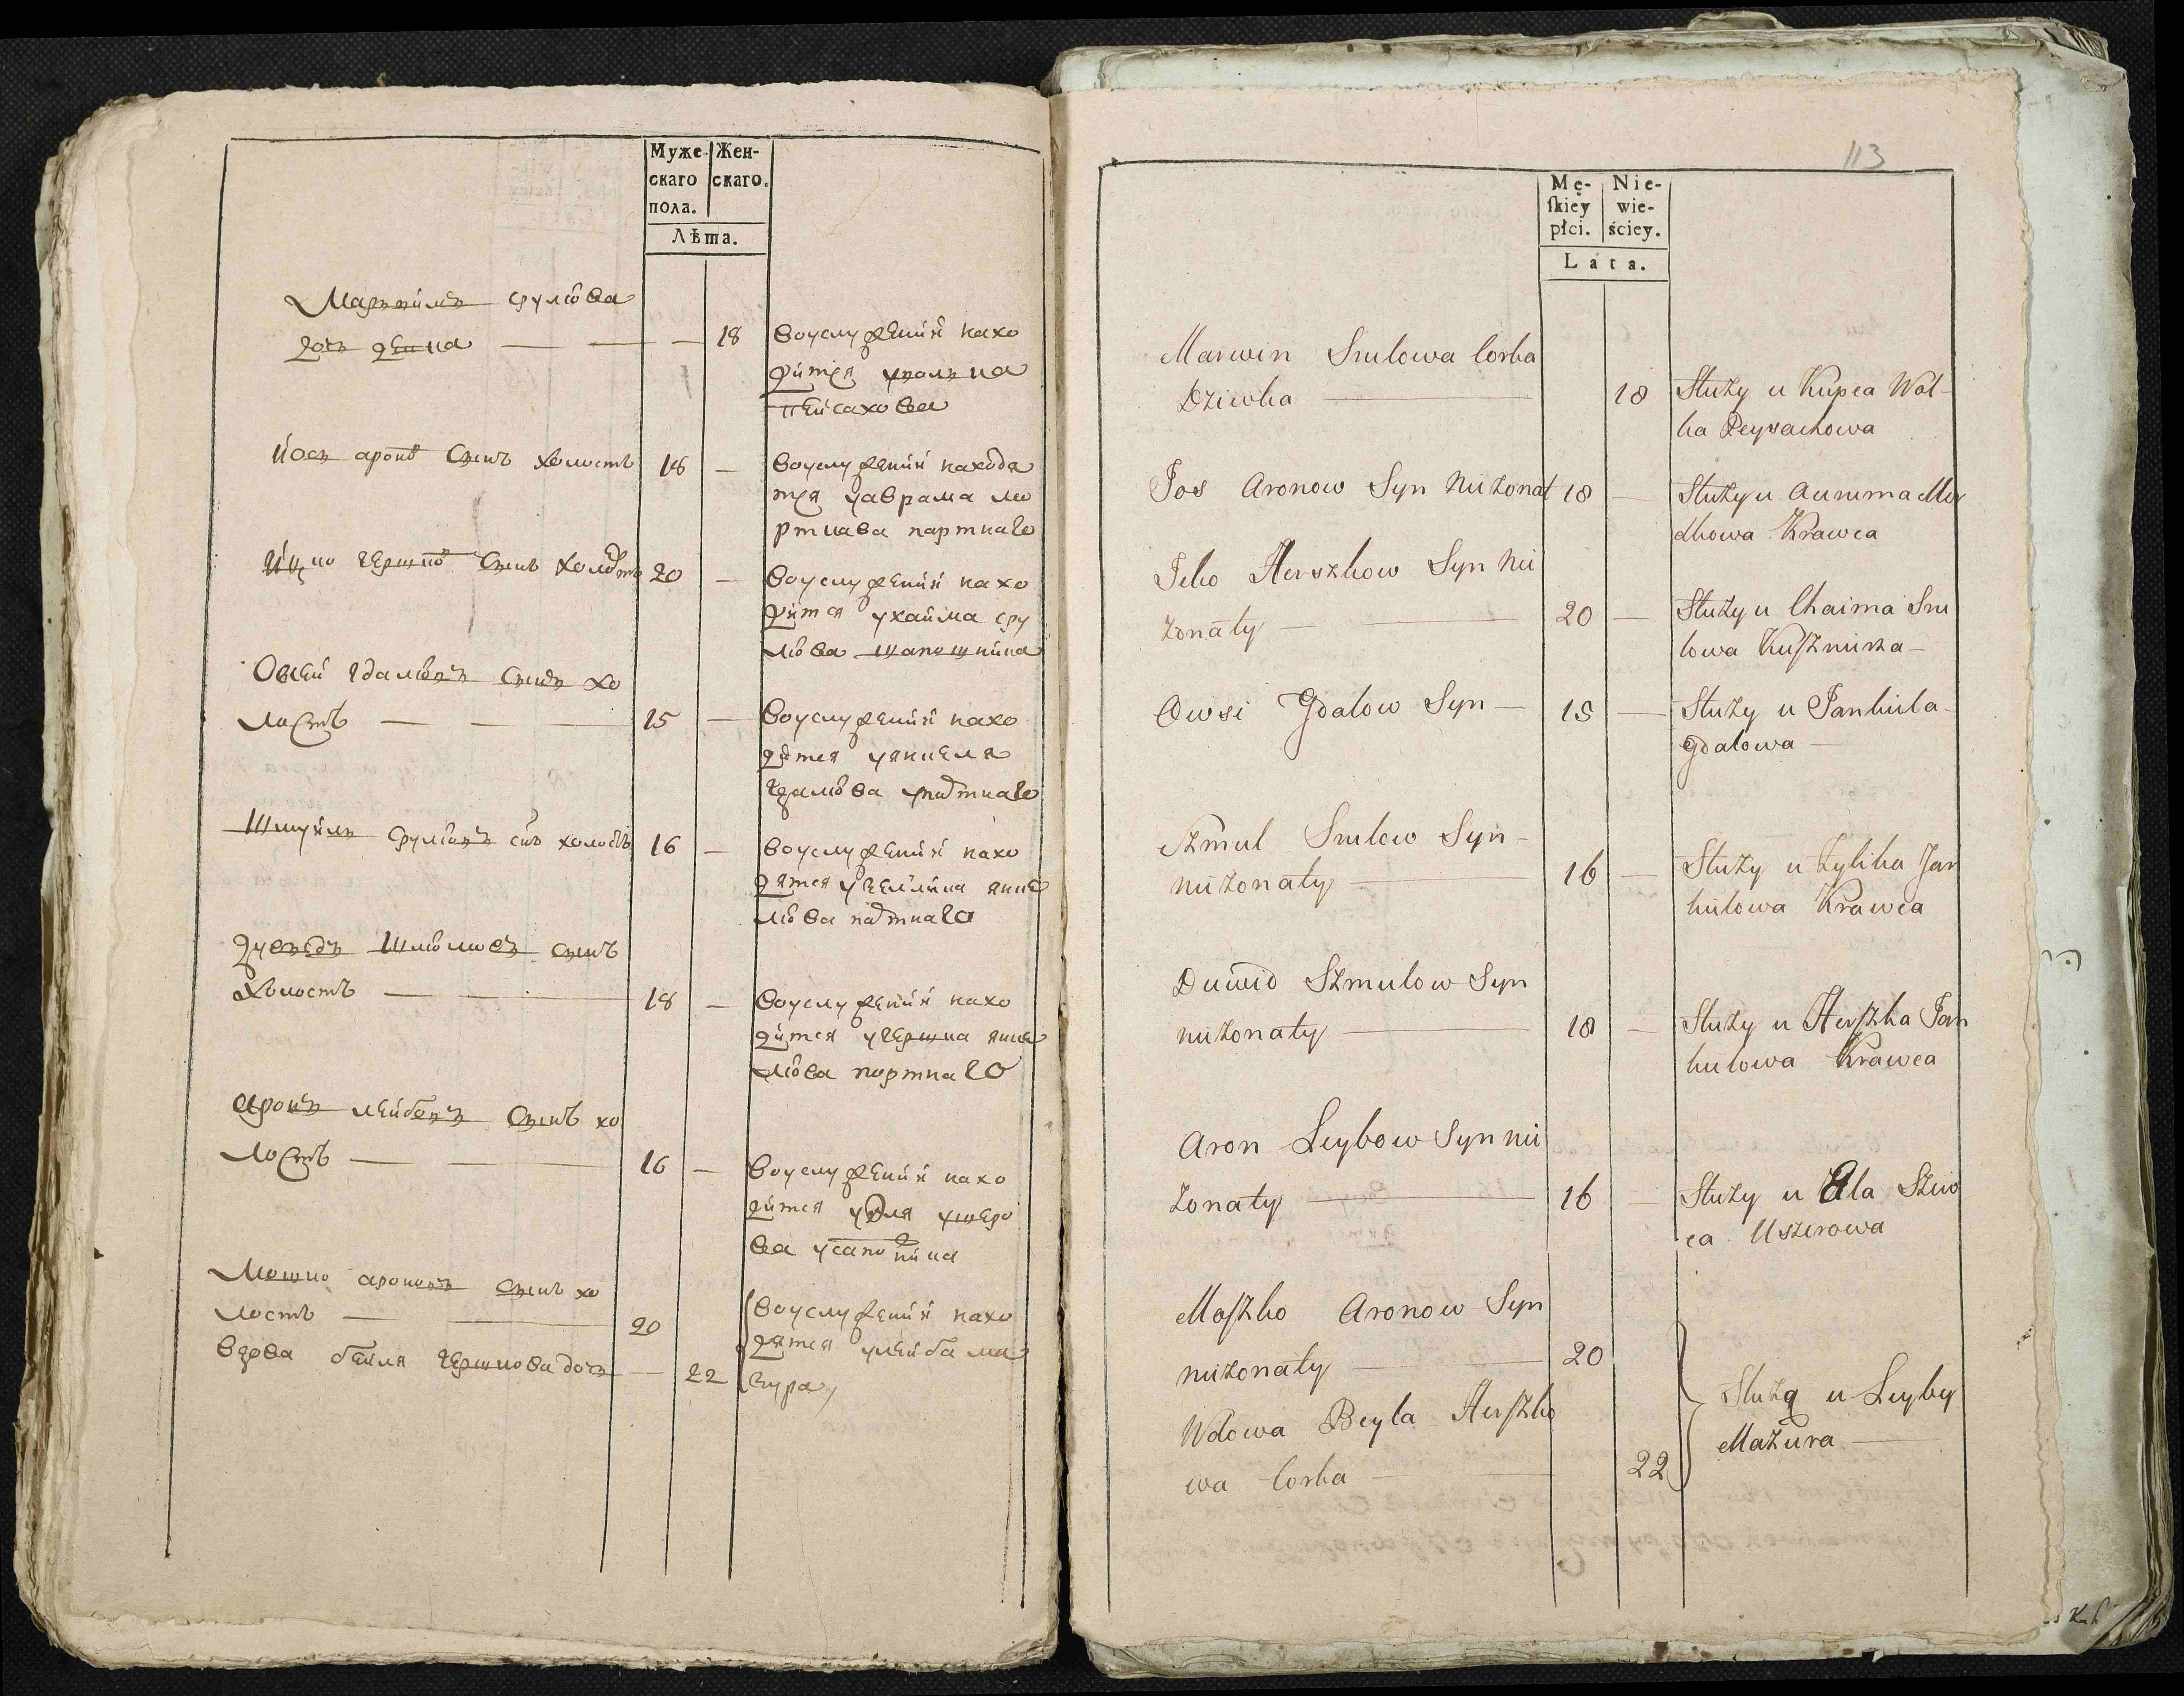 Муже-
скаго
пола.
Жен-
скаго.
Лѣта.
срулова
18
воуслуженїи нахо
дится
пейсахова
Иось аронов сынъ холостъ 18 —
воуслуженїи находи
тся уаврама мо
рткава партнаго
Ицко гершков сынъ холостъ 20 —
воуслуженїи нахо
дится ухаима сру
лова шапошника
Овсей гдалов сынъ хо
лостъ — 15 —
воуслуженїи нахо
дится уянкеля
гдалова партнаго
Шмуйль срулов сынъ холостъ 16 —
воуслуженїи нахо
дится янке
лова партнаго
сынъ
холостъ — 18 —
воуслуженїи нахо
дится угершка янке
лова портнаго
Аронъ лейбов сынъ хо
лостъ — 16 —
воуслуженїи нахо
дится ушеро
ва усапожника
Мошко аронов сынъ хо
лостъ — 20
вдова бейля гершкова дочь — 22
воуслуженїи нахо
дятся улейбы ма
зура
113
Mę-
skiey
płci.
Nie-
wie-
ściey.
Lata.
Marwin Srulowa Corka
Dziwka — 18
Służy u Kupca Wol-
ka Peysachowa
Jos Aronow Syn niżonat 18 —
Służy u Aurama Mor
dkowa Krawca
Icko Herszkow Syn ni
żonaty — 20 —
Służy u Chaima Sru
lowa Kuszmirza —
Owsi Gdalow Syn — 15 —
Służy u Jankiela
Gdalowa —
Szmul Srulow Syn —
niżonaty — 16 —
Służy u Zylika Jan
kielowa Krawca
Duwid Szmulow Syn
niżonaty — 18 —
Służy u Herszka Jan
kielowa Krawca
Aron Leybow Syn ni
żonaty — 16 —
Służy u Ela Szew
ca Uszerowa
Moszko Aronow Syn
niżonaty — 20
Wdowa Beyla Herszko
wa Corka — 22
Służą u Leyby
Mazura —